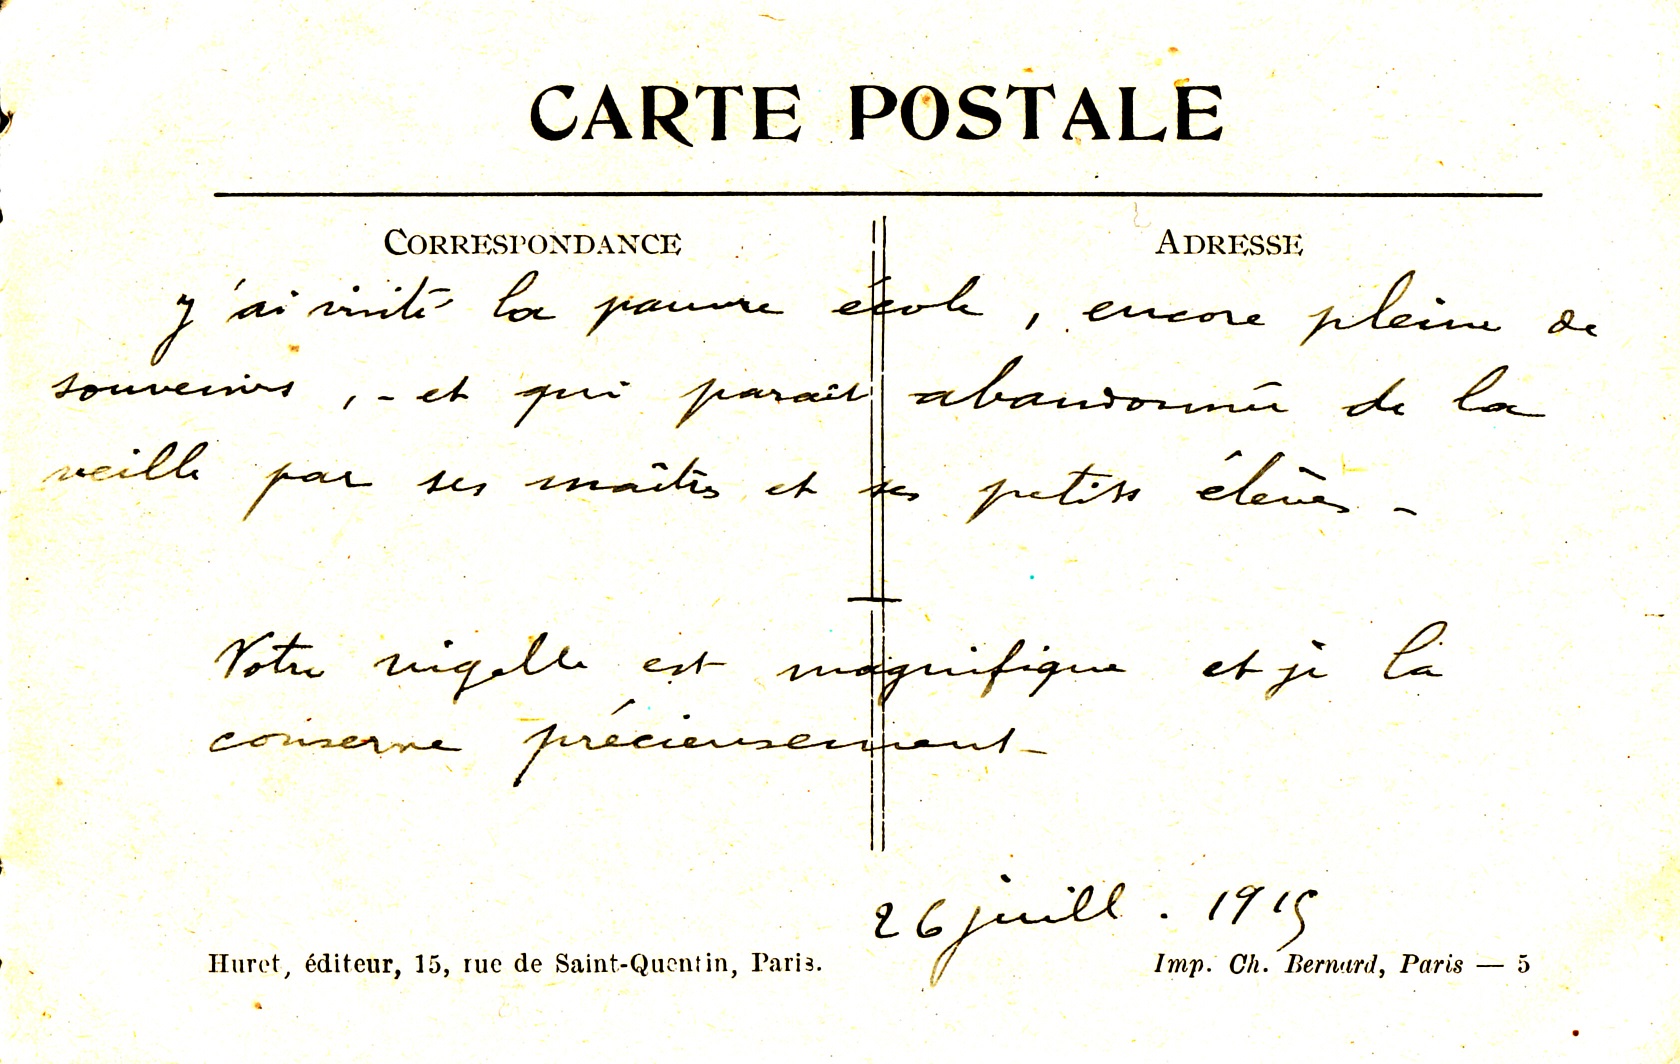 CARTE POSTALE
CORRESPONDANCE
ADRESSE
J'ai visité la pauvre école, encore pleine de
souvenirs, - et qui paraît abandonnée de la
veille par ses maîtres et ses petits élèves -
Votre nigelle est magnifique et je la
conserve précieusement -
26 juill. 1915
Huret, éditeur, 15, rue de Saint-Quentin, Paris.
Imp. Ch. Bernard, Paris — 5